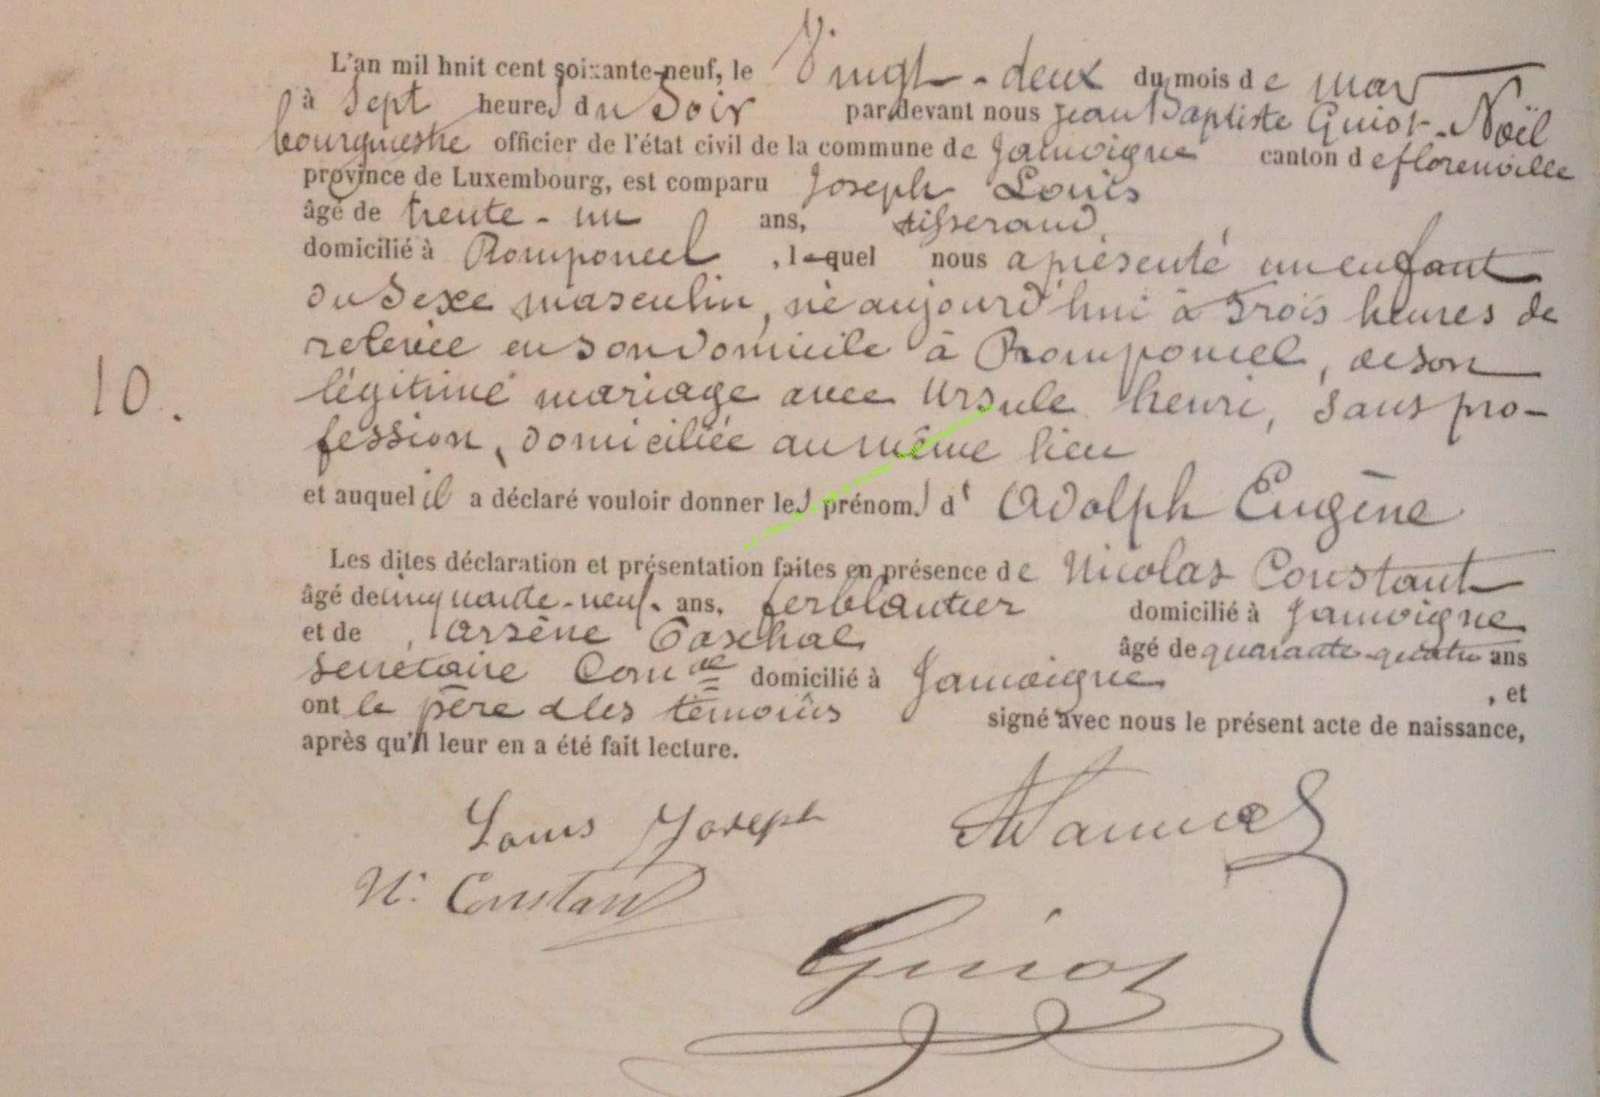 L'an mil huit cent soixante-neuf, le Vingt-deux du mois de mars
à Sept heures du Soir par devant nous Jean Baptiste Guiot-Noël
bourgmestre officier de l'état civil de la commune de Jamoigne canton de florenville
province de Luxembourg, est comparu Joseph Louis
âgé de trente-un ans, tisserand,
domicilié à Romponcel, lequel nous a présenté un enfant
du Sexe masculin, né aujourd'hui à Trois heures de
relevée en son domicile à Romponcel, de son
légitime mariage avec Ursule henri, Sans pro-
fession, domiciliée au même lieu
10.
et auquel il a déclaré vouloir donner les prénoms d' Adolph Eugène
Les dites déclaration et présentation faites en présence de Nicolas Constant
âgé de cinquante-neuf ans, ferblantier domicilié à Jamoigne
et de Arsène âgé de quarante-quatre ans
secrétaire Com.al domicilié à Jamoigne , et
ont le père et les témoins signé avec nous le présent acte de naissance,
après qu'il leur en a été fait lecture.
Louis Joseph
N. Constant
Guiot